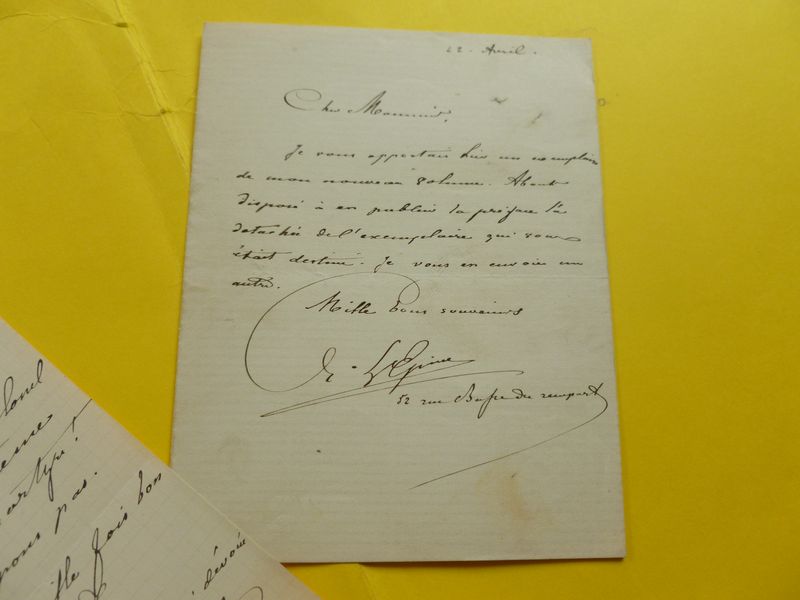 22 Avril.
Cher Monsieur,
Je vous apportais hier un exemplaire
de mon nouveau volume. About
disposé à en publier la préface l'a
detachée de l'exemplaire qui vous
était destiné. Je vous en envoie un
autre.
Mille bons souvenirs
E. L'Epine
52 rue Basse du rempart
pas.
fois bon
dévoué